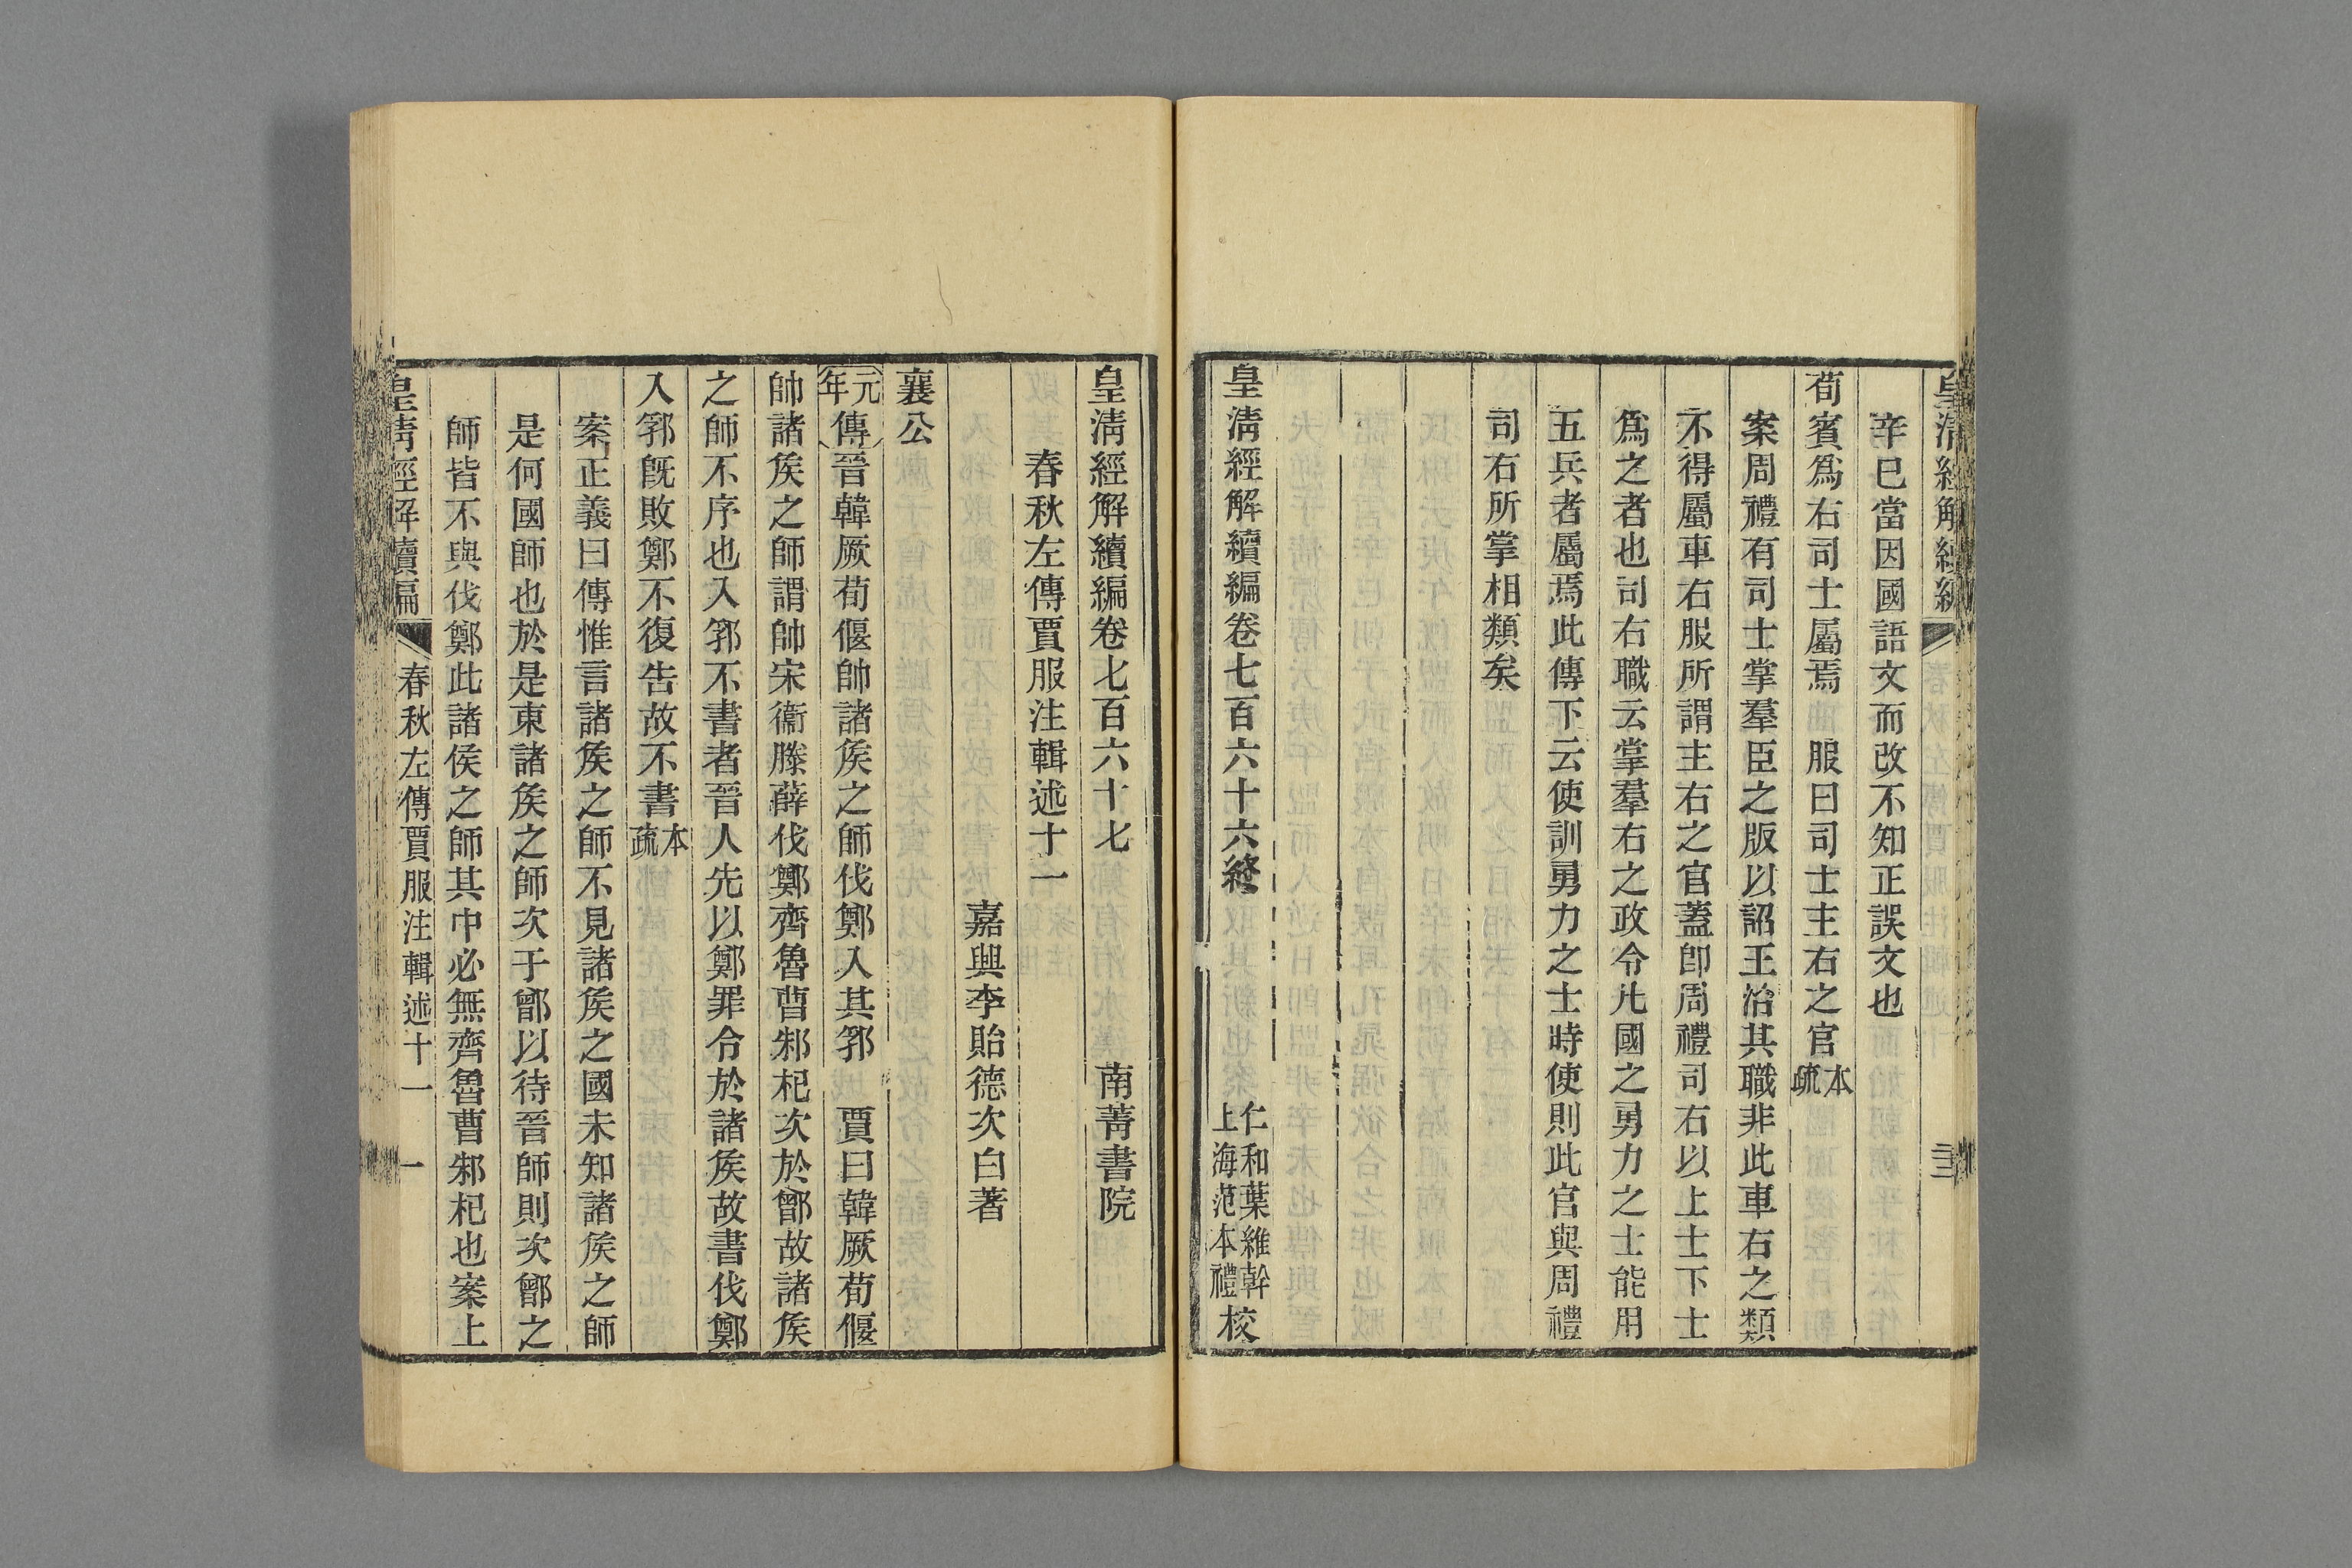 皇清經解續編
三
辛巳當因國語文而改不知正誤文也
荀賓爲右司士屬焉　服曰司士主右之官本疏
案周禮有司士掌羣臣之版以詔王治其職非此車右之類
不得屬車右服所謂主右之官蓋卽周禮司右以上士下士
爲之者也司右職云掌羣右之政令凡國之勇力之士能用
五兵者屬焉此傳下云使訓勇力之士時使則此官與周禮
司右所掌相類矣
皇淸經解續編卷七百六十六終　仁和葉維幹上海范本禮校
皇淸經解續編卷七百六十七　南菁書院
春秋左傳賈服注輯述十一
嘉興李貽德次白著
襄公
元年傳晉韓厥荀偃帥諸矦之師伐鄭入其郛　賈曰韓厥荀偃
帥諸矦之師謂帥宋衞滕薛伐鄭齊魯曹邾杞次於鄫故諸矦
之師不序也入郛不書者晉人先以鄭罪令於諸矦故書伐鄭
入郛旣敗鄭不復告故不書本疏
案正義曰傳惟言諸矦之師不見諸矦之國未知諸矦之師
是何國師也於是東諸矦之師次于鄫以待晉師則次鄫之
師皆不與伐鄭此諸侯之師其中必無齊魯曹邾杞也案上
皇清經解續編　春秋左傳賈服注輯述十一　一